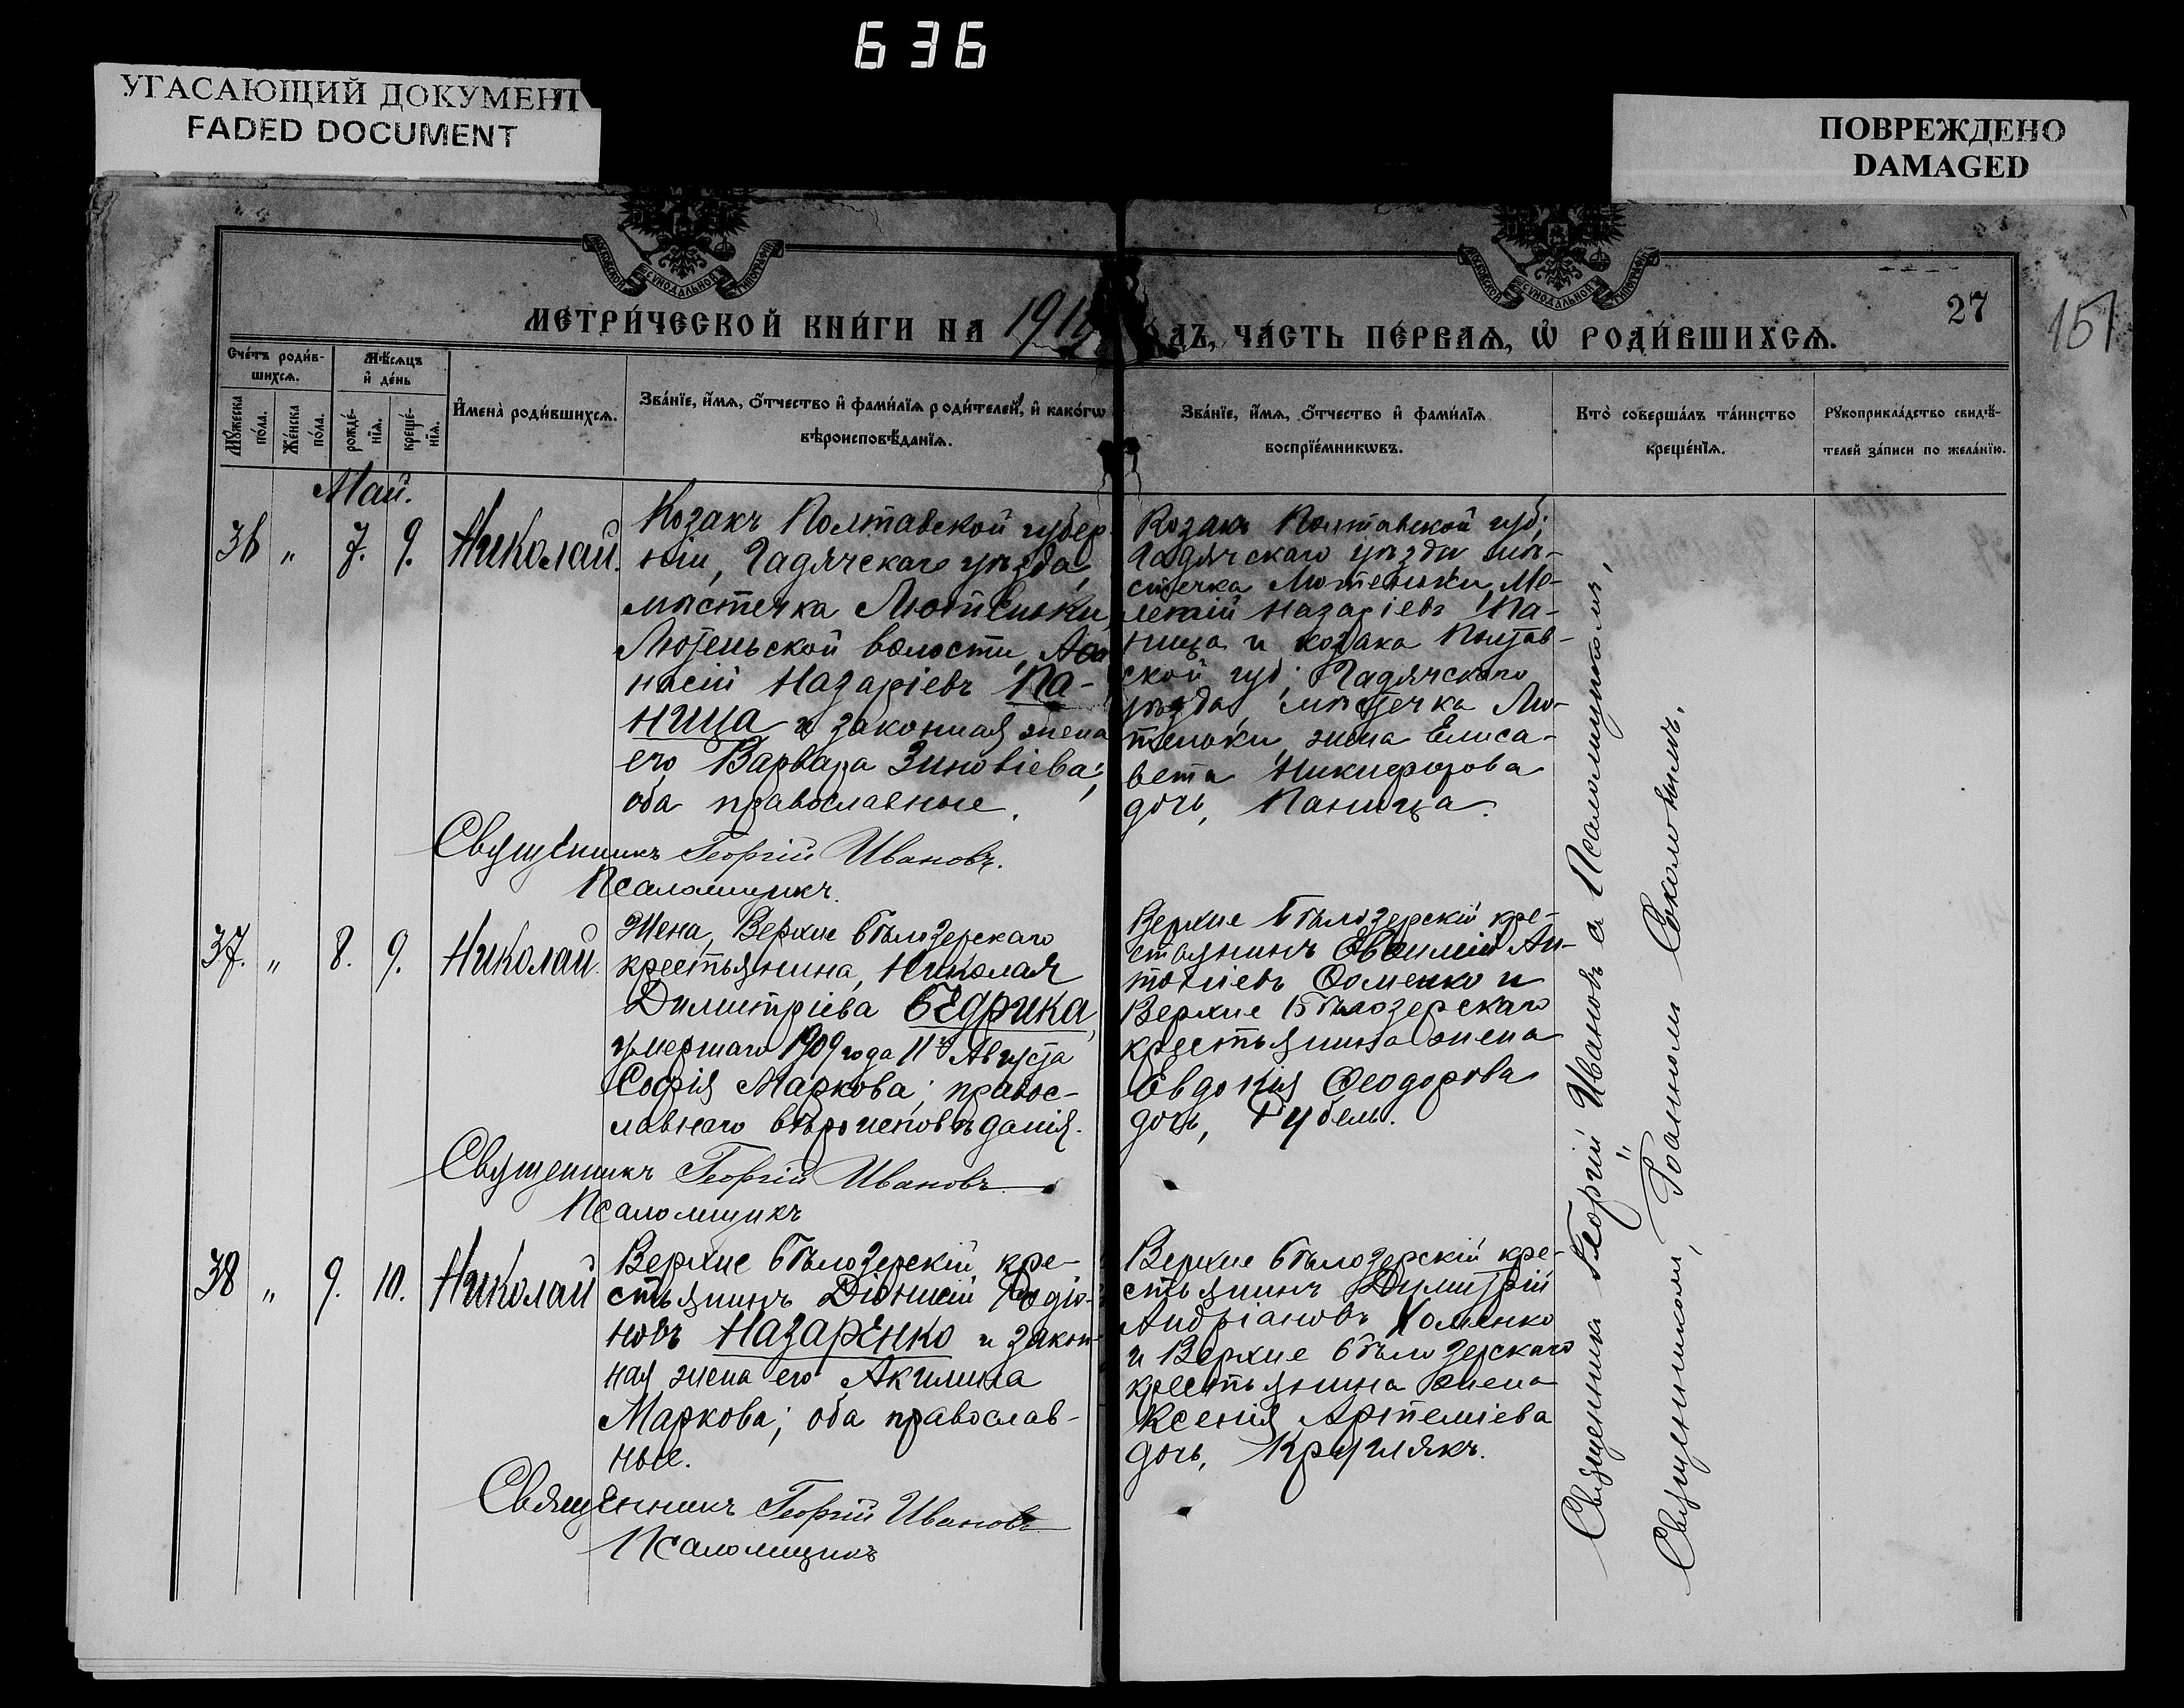 636
УГАСАЮЩИЙ ДОКУМЕНТ
FADED DOCUMENT
ПОВРЕЖДЕНО
DAMAGED
МОСКОВСКОЙ СѴНОДАЛЬНОЙ ТИПОГРАФІИ
МОСКОВСКОЙ СѴНОДАЛЬНОЙ ТИПОГРАФІИ
27
151
МЕТРИ́ЧЕСКОЙ КНИ́ГИ НА 191
ДЪ, ЧА́СТЬ ПЕ́РВАѦ, Ѡ҆ РОДИ́ВШИХСѦ.
Сче́тъ роди́в-
шихсѧ.
Мꙋ́жеска по́ла.
Же́нска по́ла.
Мѣ́сѧцъ
и҆ де́нь
рожде́-
нїѧ.
креще́-
нїѧ.
И҆мена̀ роди́вшихсѧ.
Зва́нїе, и҆́мѧ, ѻ҆́тчество и҆ фами́лїѧ роди́телей, и҆ како́гѡ
вѣроисповѣ́данїѧ.
Зва́нїе, и҆́мѧ, ѻ҆́тчество и҆ фами́лїѧ
воспрїе́мникѡвъ.
Кто̀ соверша́лъ та́инство
креще́нїѧ.
Рꙋкоприкла́дство свидѣ́-
телей за́писи по жела́нїю.
Май.
36 " 7. 9. Николай.
Козакъ Полтавской губер-
ніи, Гадячскаго уѣзда,
мѣстечка Лютеньки,
Лютеньской волости, Аѳа
насій Назаріевъ Па-
ница и законная жена
его Варвара Зиновіева;
оба православные.
Козакъ Полтавской губ.
Гадячскаго уѣзда мѣ-
стечка Лютеньки Ме-
летій Назаріевъ Па-
ница и козака Полтав-
ской губ. Гадячскаго
уѣзда, мѣстечка Лю-
теньки, жена Елиса-
вета Никифорова
дочь, Паница.
Священникъ Георгій Ивановъ.
Псаломщикъ.
37. " 8. 9. Николай.
Жена, Верхне Бѣлозерскаго
крестьянина, Николая
Димитріева Бедрика,
умершаго 1909 года 11 Августа
Софія Маркова; правос-
лавнаго вѣроисповѣданія.
Верхне Бѣлозерскій кре-
стьянинъ Евѳимій Ан-
тоніевъ Ѳоменко и
Верхне Бѣлозерскаго
крестьянина жена
Евдокія Ѳеодорова
дочь, Рубель.
Священникъ Георгій Ивановъ
Псаломщикъ
38 " 9. 10. Николай
Верхне Бѣлозерскій кре-
стьянинъ Діонисій Родіо-
новъ Назаренко и закон-
ная жена его Акилина
Маркова; оба православ-
ные.
Верхне Бѣлозерскій кре-
стьянинъ Димитрій
Андріановъ Хоменко
и Верхне Бѣлозерскаго
крестьянина жена
Ксенія Артеміева
дочь, Круглякъ.
Священникъ Георгій Ивановъ
Псаломщикъ
Священникъ Георгій Ивановъ съ Псаломщикомъ,
Священникомъ, Іоанномъ